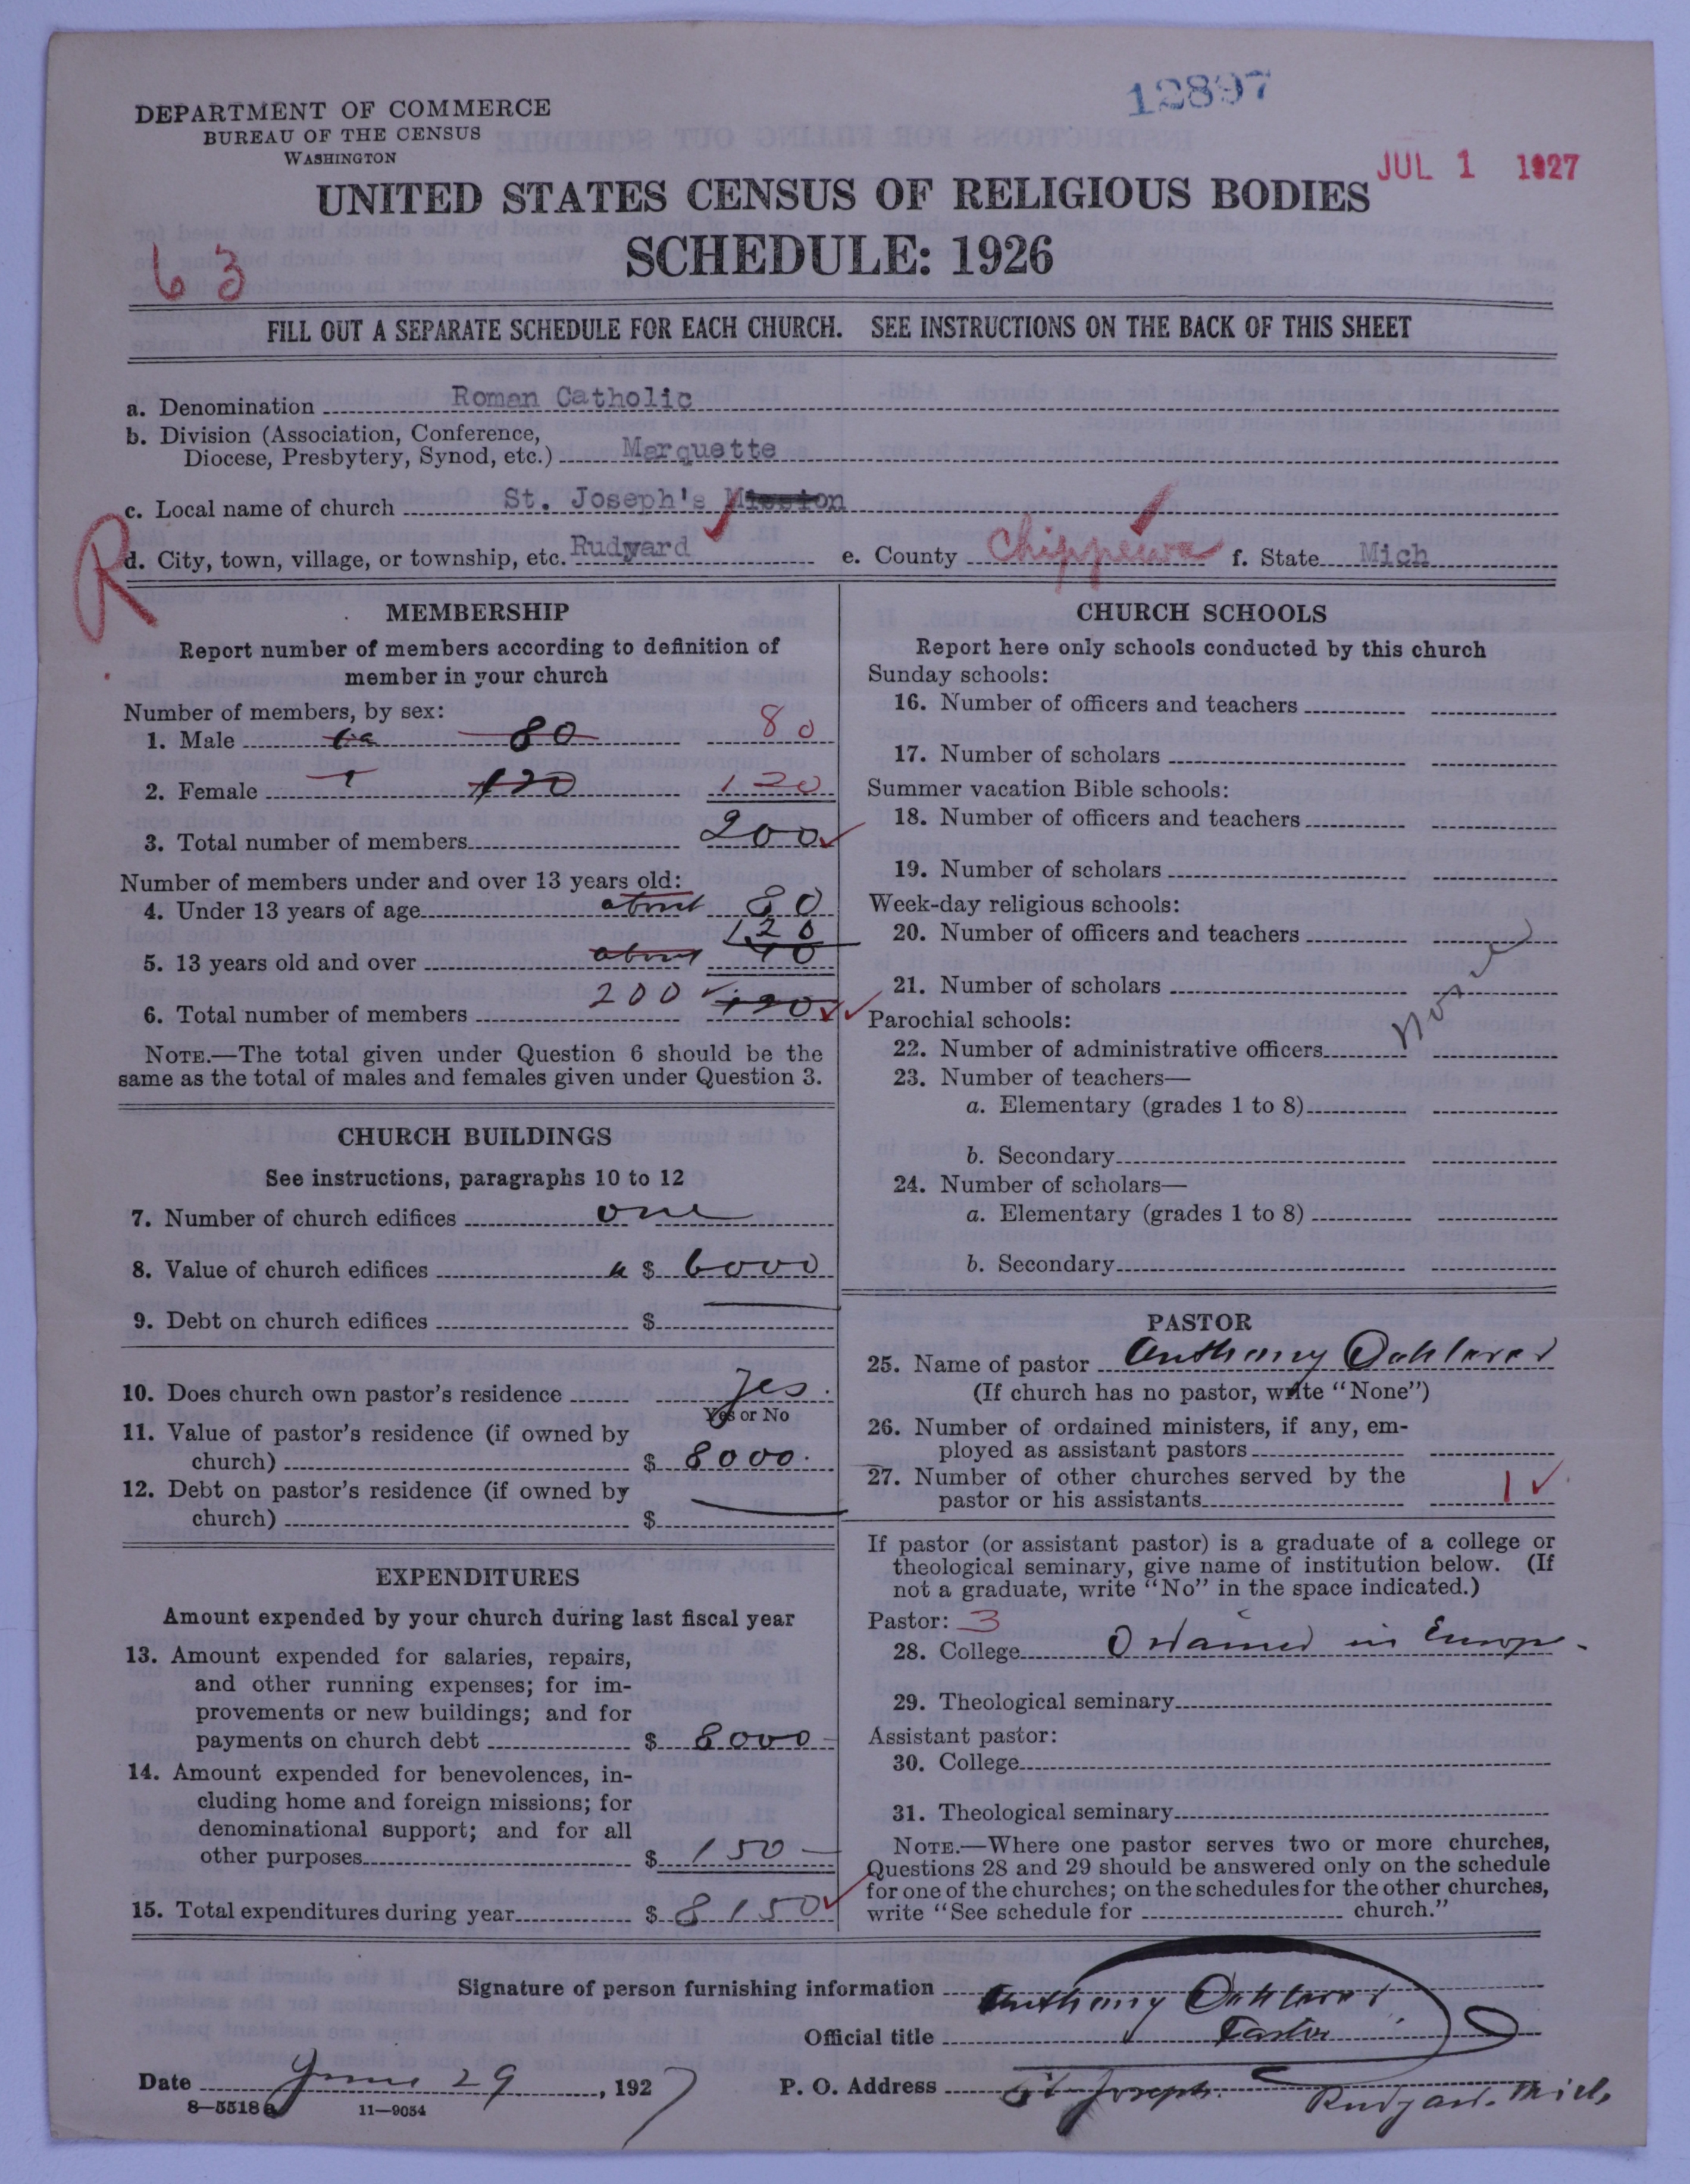 12897
DEPARTMENT OF COMMERCE
BUREAU OF THE CENSUS
WASHINGTON
JUL 1 1927
UNITED STATES CENSUS OF RELIGIOUS BODIES
SCHEDULE: 1926
63
FILL OUT A SEPARATE SCHEDULE FOR EACH CHURCH. SEE INSTRUCTIONS ON THE BACK OF THIS SHEET
a. Denomination Roman Catholic
b. Division (Association, Conference,
Diocese, Presbytery, Synod, etc.) Marquette
c. Local name of church St. Joseph's Mission
R
d. City, town, village, or township, etc. Rudyard e. County Chippewa f. State Mich
MEMBERSHIP
Report number of members according to definition of
member in your church
Number of members, by sex:
1. Male 80 80
2. Female 120 120
3. Total number of members 200
Number of members under and over 13 years old:
4. Under 13 years of age about 80
120
5. 13 years old and over about 40
6. Total number of members 200 120
NOTE.—The total given under Question 6 should be the
same as the total of males and females given under Question 3.
CHURCH BUILDINGS
See instructions, paragraphs 10 to 12
7. Number of church edifices one
8. Value of church edifices $ 6000
9. Debt on church edifices $
10. Does church own pastor's residence Yes
Yes or No
11. Value of pastor's residence (if owned by
church) $ 8000
12. Debt on pastor's residence (if owned by
church) $
EXPENDITURES
Amount expended by your church during last fiscal year
13. Amount expended for salaries, repairs,
and other running expenses; for im-
provements or new buildings; and for
payments on church debt $ 8000
14. Amount expended for benevolences, in-
cluding home and foreign missions; for
denominational support; and for all
other purposes $ 150
15. Total expenditures during year $ 8150
CHURCH SCHOOLS
Report here only schools conducted by this church
Sunday schools:
16. Number of officers and teachers
17. Number of scholars
Summer vacation Bible schools:
18. Number of officers and teachers
19. Number of scholars
Week-day religious schools:
20. Number of officers and teachers
21. Number of scholars
None
Parochial schools:
22. Number of administrative officers
23. Number of teachers—
a. Elementary (grades 1 to 8)
b. Secondary
24. Number of scholars—
a. Elementary (grades 1 to 8)
b. Secondary
PASTOR
25. Name of pastor Anthony
(If church has no pastor, write "None")
26. Number of ordained ministers, if any, em-
ployed as assistant pastors
27. Number of other churches served by the
pastor or his assistants 1
If pastor (or assistant pastor) is a graduate of a college or
theological seminary, give name of institution below. (If
not a graduate, write "No" in the space indicated.)
Pastor: 3
28. College Ordained in Europe
29. Theological seminary
Assistant pastor:
30. College
31. Theological seminary
NOTE.—Where one pastor serves two or more churches,
Questions 28 and 29 should be answered only on the schedule
for one of the churches; on the schedules for the other churches,
write "See schedule for church."
Signature of person furnishing information Anthony
Official title Pastor
Date June 29, 1927 P. O. Address St Joseph. Rudyard. Mich.
8—5518a 11—9054